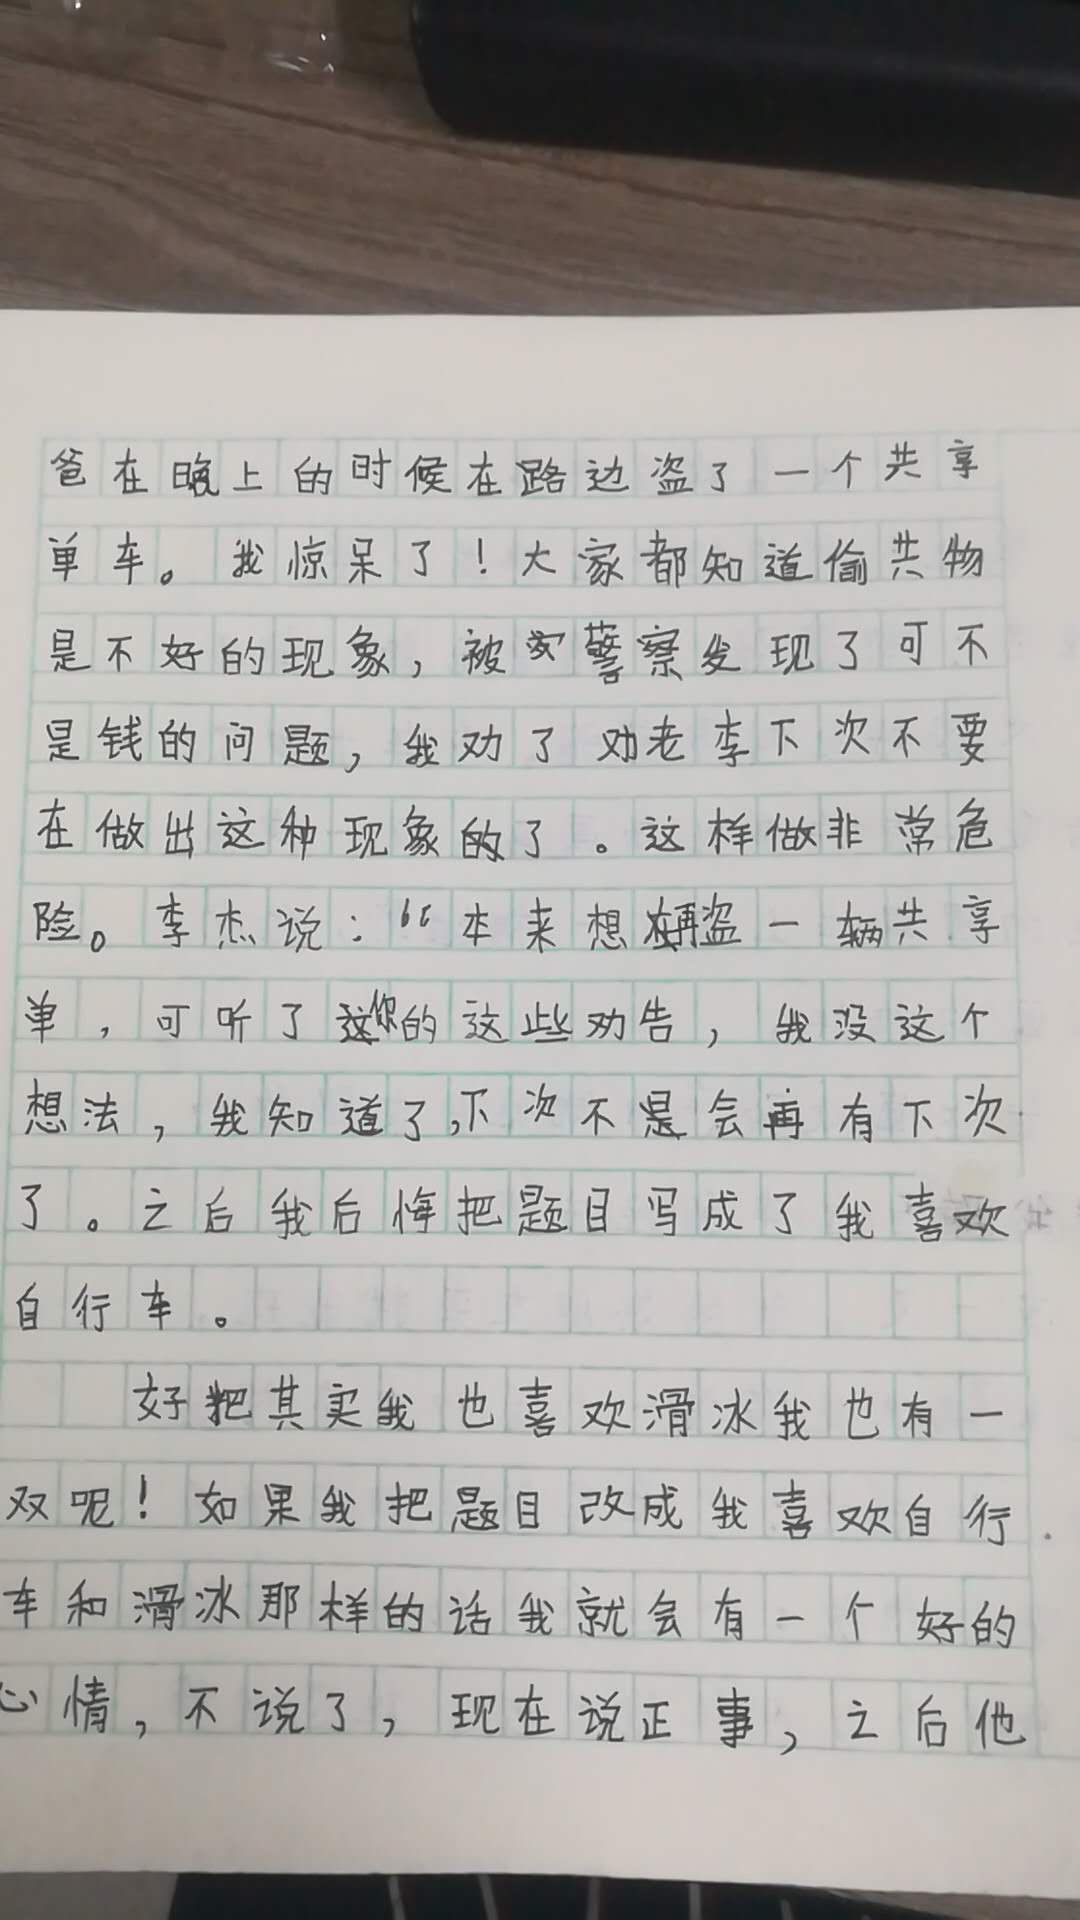 爸在晚上的时候在路边盗了一个共享
单车。我惊呆了！大家都知道偷共物
是不好的现象，被警察发现了可不
是钱的问题，我劝了劝老李下次不要
在做出这种现象的了。这样做非常危
险。李杰说：“本来想再盗一辆共享
单，可听了你的这些劝告，我没这个
想法，我知道了，下次不是会再有下次
了。之后我后悔把题目写成了我喜欢
自行车。
好把其实我也喜欢滑冰我也有一
双呢！如果我把题目改成我喜欢自行
车和滑冰那样的话我就会有一个好的
心情，不说了，现在说正事，之后他